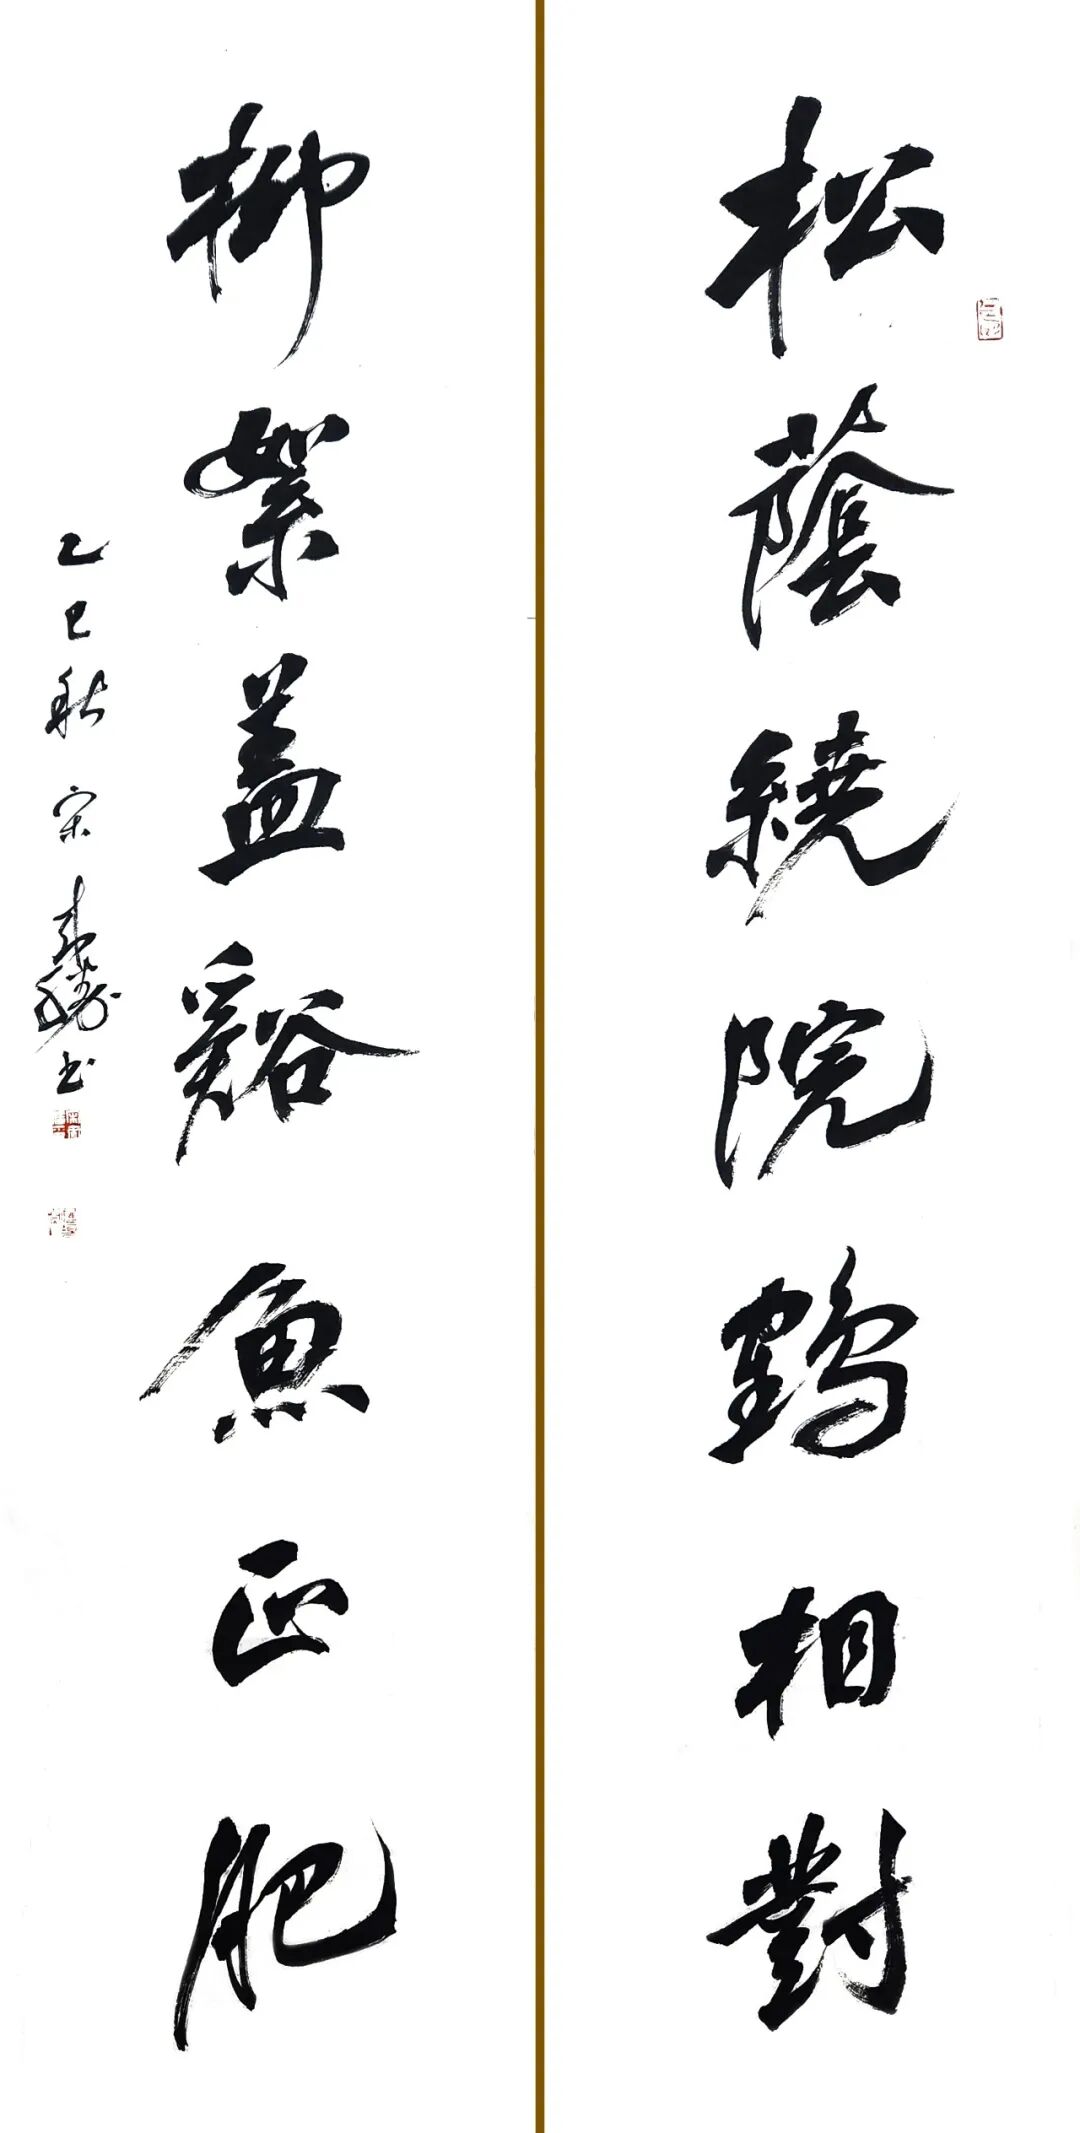 松蔭繞院鶴相對
柳絮蓋谿魚正肥
乙巳秋 宋 书